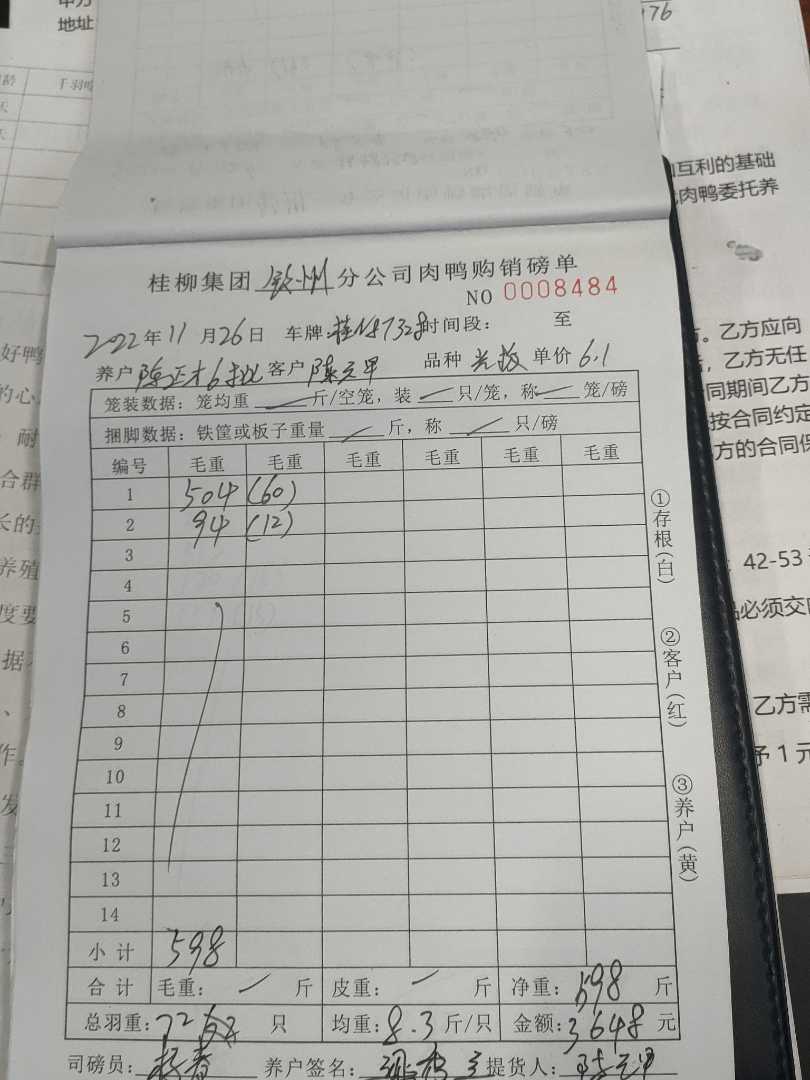 甲方
地址
176
千羽
互利的基础
肉鸭委托养
桂柳集团 钦州 分公司肉鸭购销磅单
NO 0008484
2022年11月26日 车牌:桂N8732 时间段: 至
养户 陈正才6批 客户 陈立甲 品种 单价 6.1
笼装数据:笼均重 斤/空笼,装 只/笼,称 笼/磅
捆脚数据:铁筐或板子重量 斤,称 只/磅
编号 毛重 毛重 毛重 毛重 毛重 毛重
1 504 (60)
2 94 (12)
3
4
5
6
7
8
9
10
11
12
13
14
小计 598
合计 毛重: 斤 皮重: 斤 净重:598 斤
总羽重:72 只 均重:8.3 斤/只 金额:3648 元
司磅员: 养户签名: 提货人:
①存根(白)
②客户(红)
③养户(黄)
乙方应向
,乙方无任
同期间乙方
按合同约定
方的合同保
42-53
品必须交
乙方需
予 1 元
好鸭
的心
耐
合群
长的
养殖
度要
据
作。
发